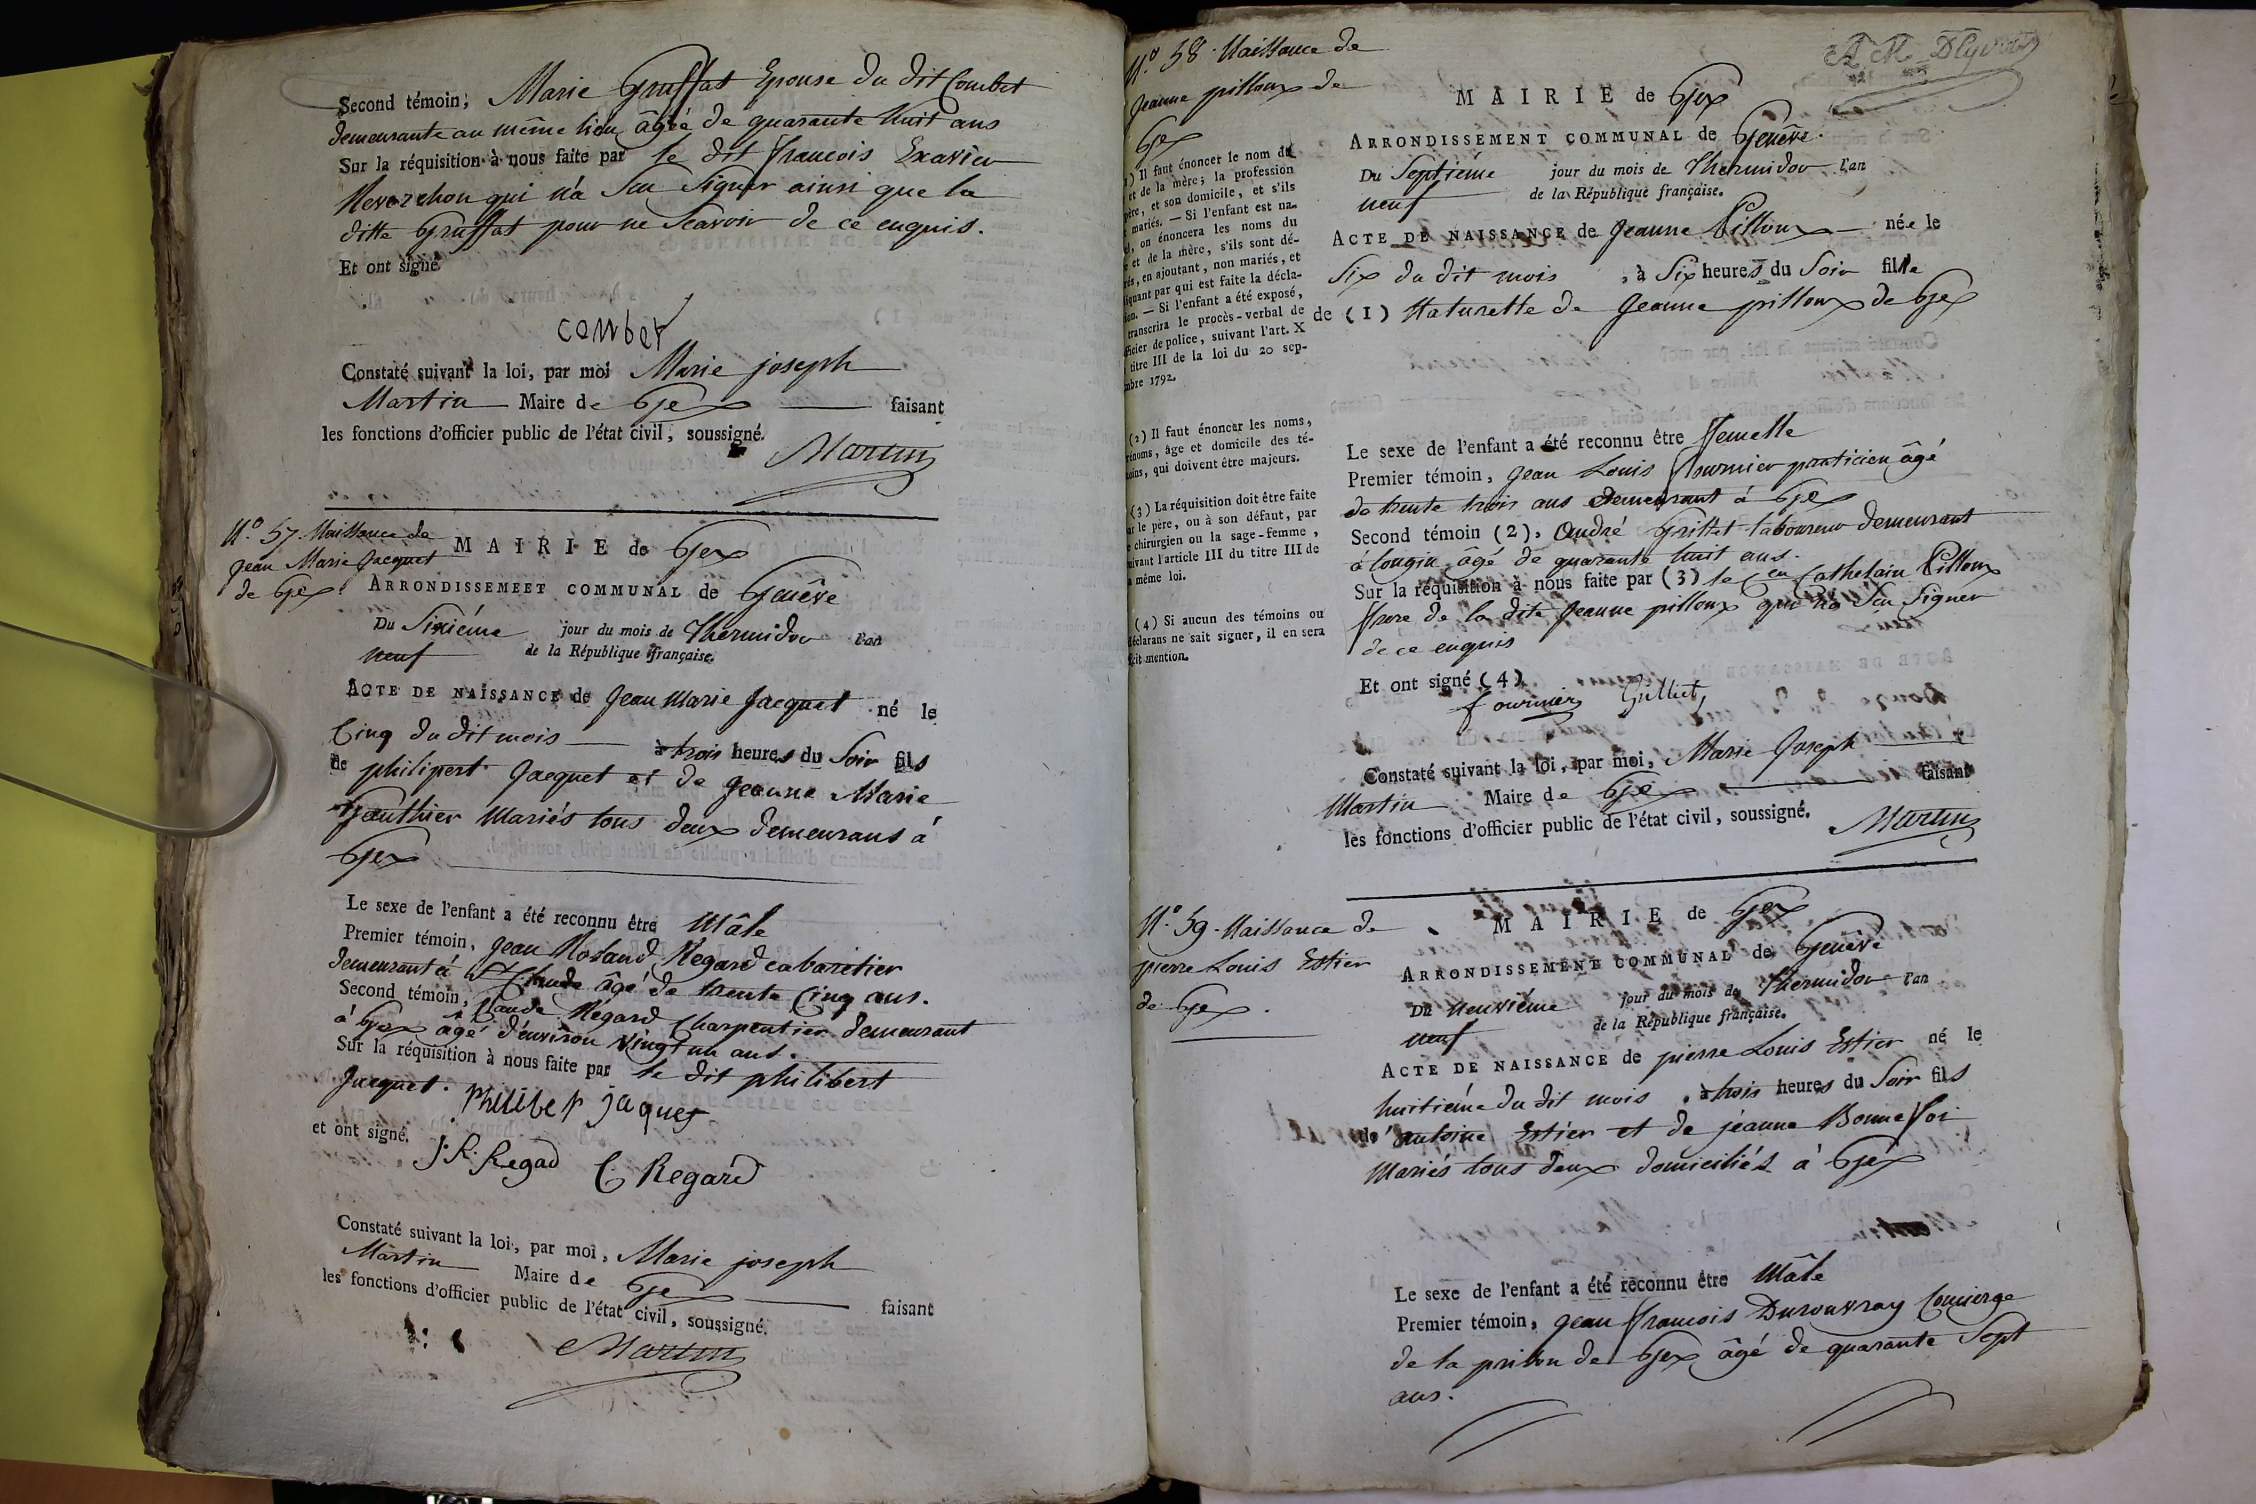 Second témoin, Marie Gruffat Epouse du dit Combet
demeurante au même lieu âgée de quarante huit ans
Sur la réquisition à nous faite par le dit francois Exavier
Reverchon qui n'a Scu Signer ainsi que la
ditte Gruffat pour ne Scavoir de ce enquis.
Et ont signé
combet
Constaté suivant la loi, par moi Marie joseph
Martin Maire de Gex faisant
les fonctions d'officier public de l'état civil, soussigné.
Martin
N.º 57. Naissance de
Jean Marie Jacquet
de Gex.
MAIRIE de Gex
ARRONDISSEMEET COMMUNAL de Genêve
Du Sixiéme jour du mois de Thermidor l'an
neuf de la République française.
ACTE DE NAISSANCE de Jean Marie Jacquet né le
Cinq du dit mois à trois heures du Soir fils
de philipert Jacquet et de Jeanne Marie
Gauthier Mariés tous deux demeurans à
Gex
Le sexe de l'enfant a été reconnu être Mâle
Premier témoin, Jean Roland Regard cabaretier
demeurant à St Claude âgé de trente Cinq ans.
Second témoin, Claude Régard Charpentier demeurant
à Gex âgé d'environ vingt un ans.
Sur la réquisition à nous faite par le dit philibert
Jacquet. Philibert jaques
et ont signé. J. R. Regad C. Regard
Constaté suivant la loi, par moi, Marie joseph
Martin Maire de Gex faisant
les fonctions d'officier public de l'état civil, soussigné.
Martin
N.º 58. Naissance de
Jeanne pilloux de
Gex
) Il faut énoncer le nom du
et de la mère; la profession
père, et son domicile, et s'ils
mariés. — Si l'enfant est na-
, on énoncera les noms du
et de la mère, s'ils sont dé-
, en ajoutant, non mariés, et
quant par qui est faite la décla-
. — Si l'enfant a été exposé,
transcrira le procès-verbal de
officier de police, suivant l'art. X
titre III de la loi du 20 sep-
mbre 1792.
(2) Il faut énoncer les noms,
rénoms, âge et domicile des té-
moins, qui doivent être majeurs.
(3) La réquisition doit être faite
par le père, ou à son défaut, par
chirurgien ou la sage-femme,
suivant l'article III du titre III de
même loi.
(4) Si aucun des témoins ou
déclarans ne sait signer, il en sera
fait mention.
MAIRIE de Gex
ARRONDISSEMENT COMMUNAL de Genêve.
Du Septiéme jour du mois de Thermidor l'an
neuf de la République française.
ACTE DE NAISSANCE de Jeanne Pilloux née le
Six du dit mois, à Six heures du Soir fille
de (1) Naturelle de Jeanne pilloux de Gex
Le sexe de l'enfant a été reconnu être femelle
Premier témoin, Jean Louis fournier praticien âgé
de trente trois ans demeurant à Gex
Second témoin (2), André Grillet laboureur demeurant
à longin âgé de quarante huit ans.
Sur la réquisition à nous faite par (3) le Cn Cathelain Pilloux
frere de la dite Jeanne pilloux qui n'a Scu Signer
de ce enquis
Et ont signé (4)
fournier Grillet
Constaté suivant la loi, par moi, Marie Joseph
Martin Maire de Gex faisant
les fonctions d'officier public de l'état civil, soussigné.
Martin
N.º 59. Naissance de
pierre Louis Estier
de Gex.
MAIRIE de Gex
ARRONDISSEMENT COMMUNAL de Genêve
Du neuviéme jour du mois de Thermidor l'an
neuf de la République française.
ACTE DE NAISSANCE de pierre Louis Estier né le
huitiéme du dit mois, à trois heures du Soir fils
de antoine Estier et de jéanne Bonnefoi
Mariés tous deux domiciliés à Gex
Le sexe de l'enfant a été reconnu être Mâle
Premier témoin, Jean francois Durouvray Concierge
de la prison de Gex âgé de quarante Sept
ans.